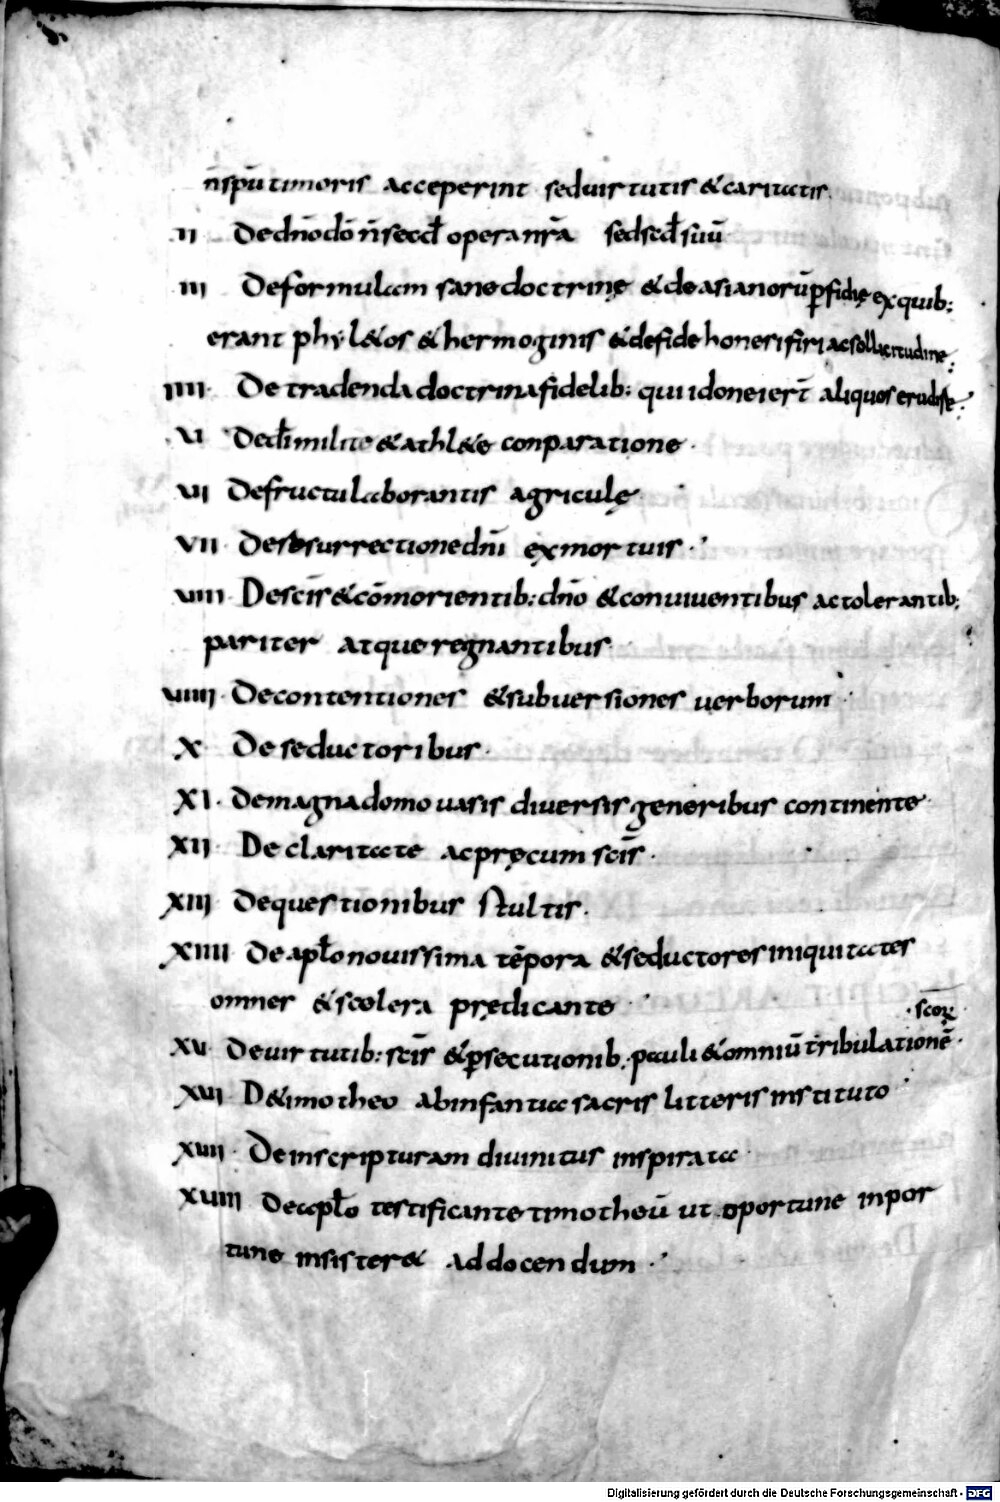 n̄ sp̄u timoris acceperint sed uirtutis & caritatis.
II De dn̄o dō n̄ secd̄ opera nr̄a sed scd̄ suū
III De formulam sane doctrinę & de asianorū p̱fidię ex quib:
erant phyl&os & hermoginis & de fide honesifiri ac sollicitudine.
IIII De tradenda doctrina fidelib: qui idonei er̄t aliquos erudire.
VI De di milite & athl&e conparatione.
VI De fructu laborantis agriculę.
VII De resurrectione dn̄i ex mortuis.
VIII De scīs & cōmorientib: dn̄o & conuiuentibus ac tolerantib:
pariter atque regnantibus
VIIII De contentiones & subuersiones uerborum
X De seductoribus.
XI De magna domo uasis diuersis generibus continente.
XII De claritate ac pręcum scīs.
XIII De questionibus stultis.
XIIII De apl̄o nouissima tēpora & seductores iniquitates
omnes & scelera prędicante
scoꝝ
XV De uirtutib: scīs & p̱secutionib. pauli & omniū tribulationē.
XVI D& imotheo ab infantia sacris litteris instituto
XVII De in scripturam diuinitus inspirata
XVIII De apl̄o testificante timotheū ut oportune inpor
tune insister& ad docendum.